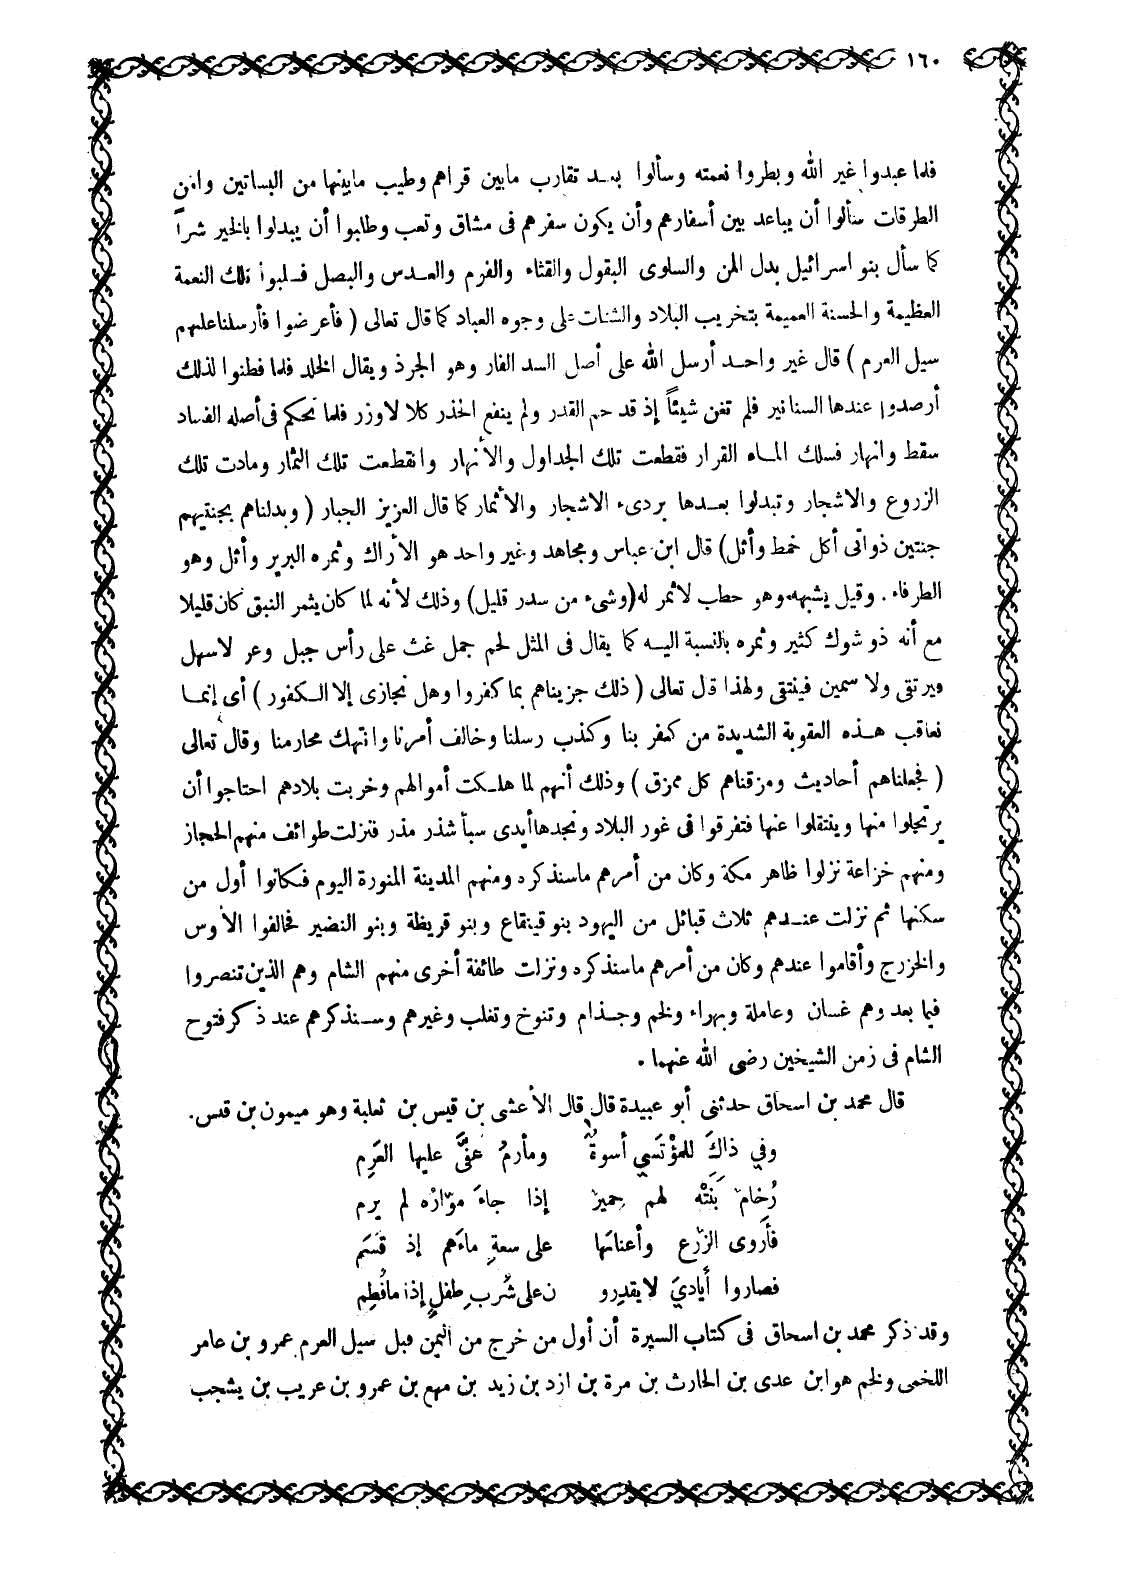 ١٦٠
فلما عبدوا غير الله وبطروا نعمته وسألوا بعد تقارب مابين قراهم وطيب مابينها من البساتين وامن
الطرقات سألوا أن يباعد بين أسفارهم وأن يكون سفرهم فى مشاق وتعب وطلبوا أن يبدلوا بالخير شراً
كما سأل بنو اسرائيل بدل المن والسلوى البقول والقثاء والفوم والعدس والبصل فسلبوا تلك النعمة
العظيمة والحسنة العميمة بتخريب البلاد والشتات على وجوه العباد كما قال تعالى ( فأعرضوا فأرسلنا عليهم
سيل العرم ) قال غير واحد أرسل الله على أصل السد الفار وهو الجرذ ويقال الخلد فلما فطنوا لذلك
أرصدوا عندها السنانير فلم تغن شيئاً إذ قد حم القدر ولم ينفع الحذر كلا لاوزر فلما تحكم فى أصله الفساد
سقط وانهار فسلك الماء القرار فقطعت تلك الجداول والأنهار وانقطعت تلك الثمار ومادت تلك
الزروع والاشجار وتبدلوا بعدها بردىء الاشجار والأثمار كما قال العزيز الجبار ( وبدلناهم بجنتيهم
جنتين ذواتى أكل خمط وأثل) قال ابن عباس ومجاهد وغير واحد هو الأراك وثمره البرير وأثل وهو
الطرفاء . وقيل يشبهه وهو حطب لاثمر له (وشىء من سدر قليل) وذلك لأنه لما كان يثمر النبق كان قليلا
مع أنه ذو شوك كثير وثمره بالنسبة اليه كما يقال فى المثل لحم جمل غث على رأس جبل وعر لاسهل
فيرتقى ولا سمين فينتقى ولهذا قال تعالى ( ذلك جزيناهم بما كفروا وهل نجازى إلا الكفور ) أى إنما
نعاقب هذه العقوبة الشديدة من كفر بنا وكذب رسلنا وخالف أمرنا وانتهك محارمنا وقال تعالى
( فجعلناهم أحاديث ومزقناهم كل ممزق ) وذلك أنهم لما هلكت أموالهم وخربت بلادهم احتاجوا أن
يرتحلوا منها وينتقلوا عنها فتفرقوا فى غور البلاد ونجدها أيدى سبأ شذر مذر فنزلت طوائف منهم الحجاز
ومنهم خزاعة نزلوا ظاهر مكة وكان من أمرهم ماسنذكره ومنهم المدينة المنورة اليوم فكانوا أول من
سكنها ثم نزلت عندهم ثلاث قبائل من اليهود بنو قينقاع وبنو قريظة وبنو النضير فحالفوا الأوس
والخزرج وأقاموا عندهم وكان من أمرهم ماسنذكره ونزلت طائفة أخرى منهم الشام وهم الذين تنصروا
فيما بعد وهم غسان وعاملة وبهراء ولخم وجذام وتنوخ وتغلب وغيرهم وسنذكرهم عند ذكر فتوح
الشام فى زمن الشيخين رضى الله عنهما .
قال محمد بن اسحاق حدثنى أبو عبيدة قال قال الأعشى بن قيس بن ثعلبة وهو ميمون بن قيس.
وفي ذاكَ للمؤْتسَي أسوةٌ ومأرمُ عفَّى عليها العَرِم
رُخامٌ بَنَتْه لهم حِميرٌ إذا جاءَ موّارُه لم يرم
فأَروى الزّرع وأعنابَها على سعةٍ ماءَهم إذ قَسَم
فصاروا أياديَ لايقدِرو ن على شُربِ طفلٍ إذا مافُطِم
وقد ذكر محمد بن اسحاق فى كتاب السيرة أن أول من خرج من اليمن قبل سيل العرم عمرو بن عامر
اللخمى ولخم هو ابن عدى بن الحارث بن مرة بن ازد بن زيد بن مهع بن عمرو بن عريب بن يشجب